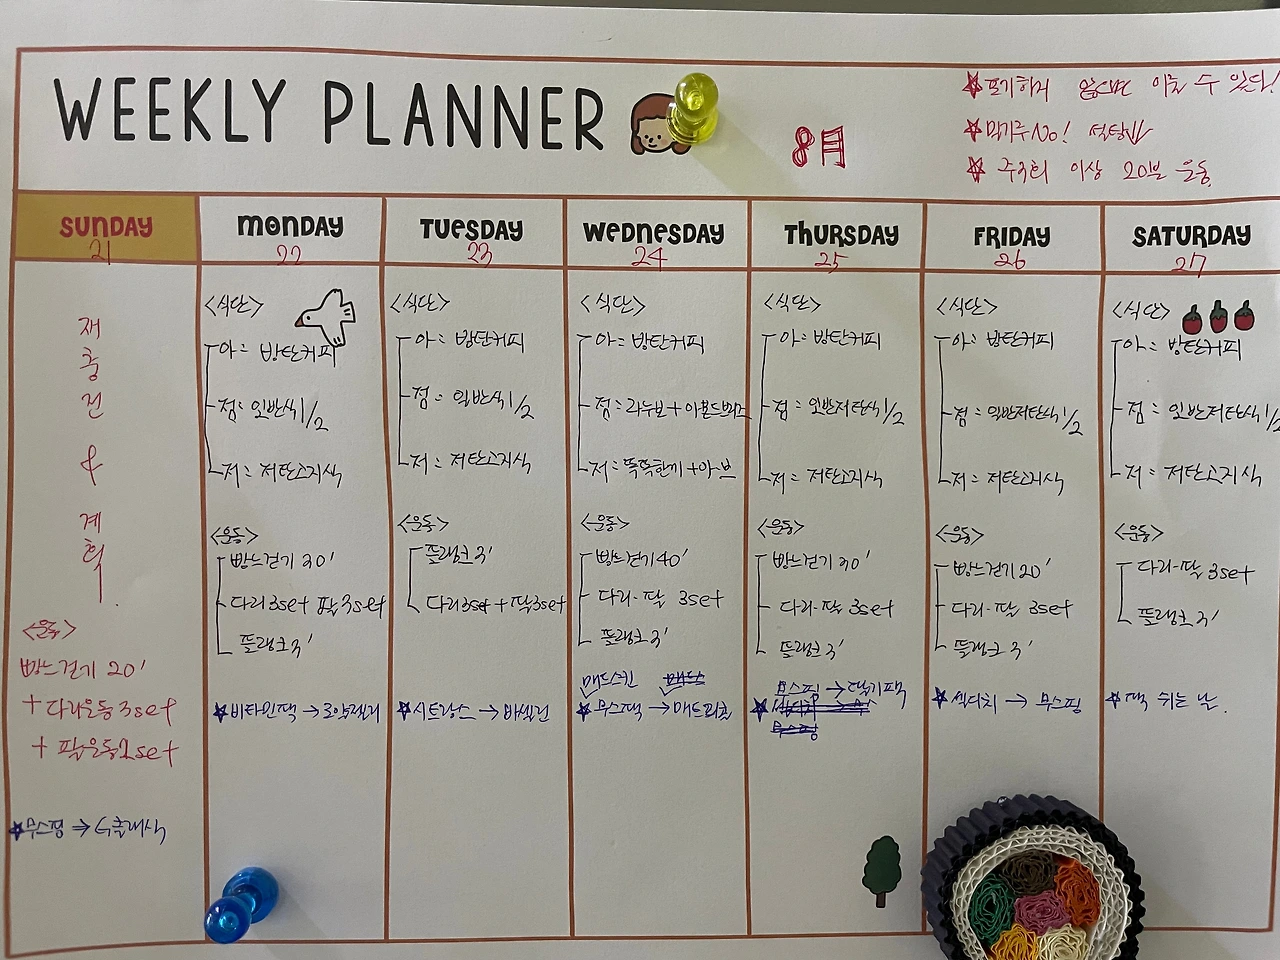 WEEKLY PLANNER
8月
포기하지 않으면 이룰 수 있다!
밀가루 No! 설탕
주3회 이상 20분 운동
SUNDAY
21
재
충
전
&
계
획
<운동>
빵느걷기 20'
+ 다리운동 3set
+ 팔운동 1set
★무스핑 →
MONDAY
22
<식단>
아: 방탄커피
점: 일반식 1/2
저: 저탄고지식
<운동>
빵느걷기 30'
다리 3set 팔 3set
플랭크 3'
★비타민팩 →
TUESDAY
23
<식단>
아: 방탄커피
점: 일반식 1/2
저: 저탄고지식
<운동>
플랭크 3'
다리 3set + 팔 3set
★시트팩스 → 바셀린
WEDNESDAY
24
<식단>
아: 방탄커피
점: 라누보 + 아몬드브리즈
저: 똑똑한끼 + 아브
<운동>
빵느걷기 40'
다리·팔 3set
플랭크 3'
매드스킨
★무스팩 →
THURSDAY
25
<식단>
아: 방탄커피
점: 일반저탄식 1/2
저: 저탄고지식
<운동>
빵느걷기 30'
다리·팔 3set
플랭크 3'
무스핑 → 딸기팩
★
무스핑
FRIDAY
26
<식단>
아: 방탄커피
점: 일반저탄식 1/2
저: 저탄고지식
<운동>
빵느걷기 20'
다리·팔 3set
플랭크 3'
★ → 무스핑
SATURDAY
27
<식단>
아: 방탄커피
점: 일반저탄식 1/2
저: 저탄고지식
<운동>
다리·팔 3set
플랭크 3'
★팩 쉬는 날.